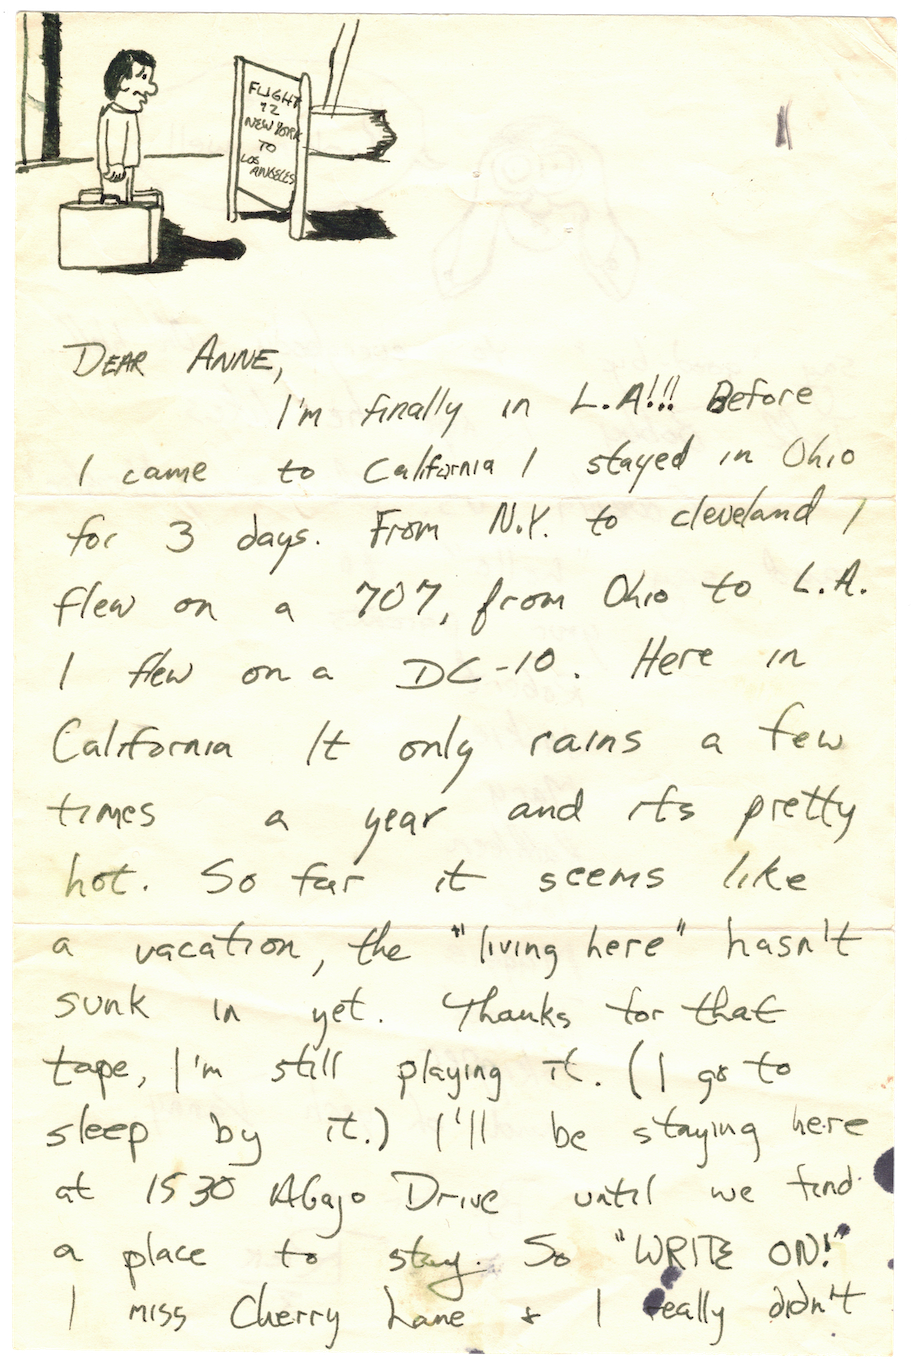 FLIGHT
92
NEW YORK
TO
LOS
ANGELES
DEAR ANNE,
I'm finally in L.A!!! Before
I came to California I stayed in Ohio
for 3 days. From N.Y. to cleveland I
flew on a 707, from Ohio to L.A.
I flew on a DC-10. Here in
California It only rains a few
times a year and it's pretty
hot. So far it seems like
a vacation, the "living here" hasn't
sunk in yet. Thanks for that
tape, I'm still playing it. (I go to
sleep by it.) I'll be staying here
at 1530 Abajo Drive until we find
a place to stay. So "WRITE ON!"
I miss Cherry Lane & I really didn't